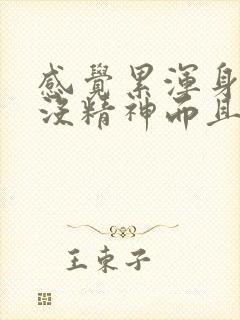 感覺累渾身
沒精神而且
王東子